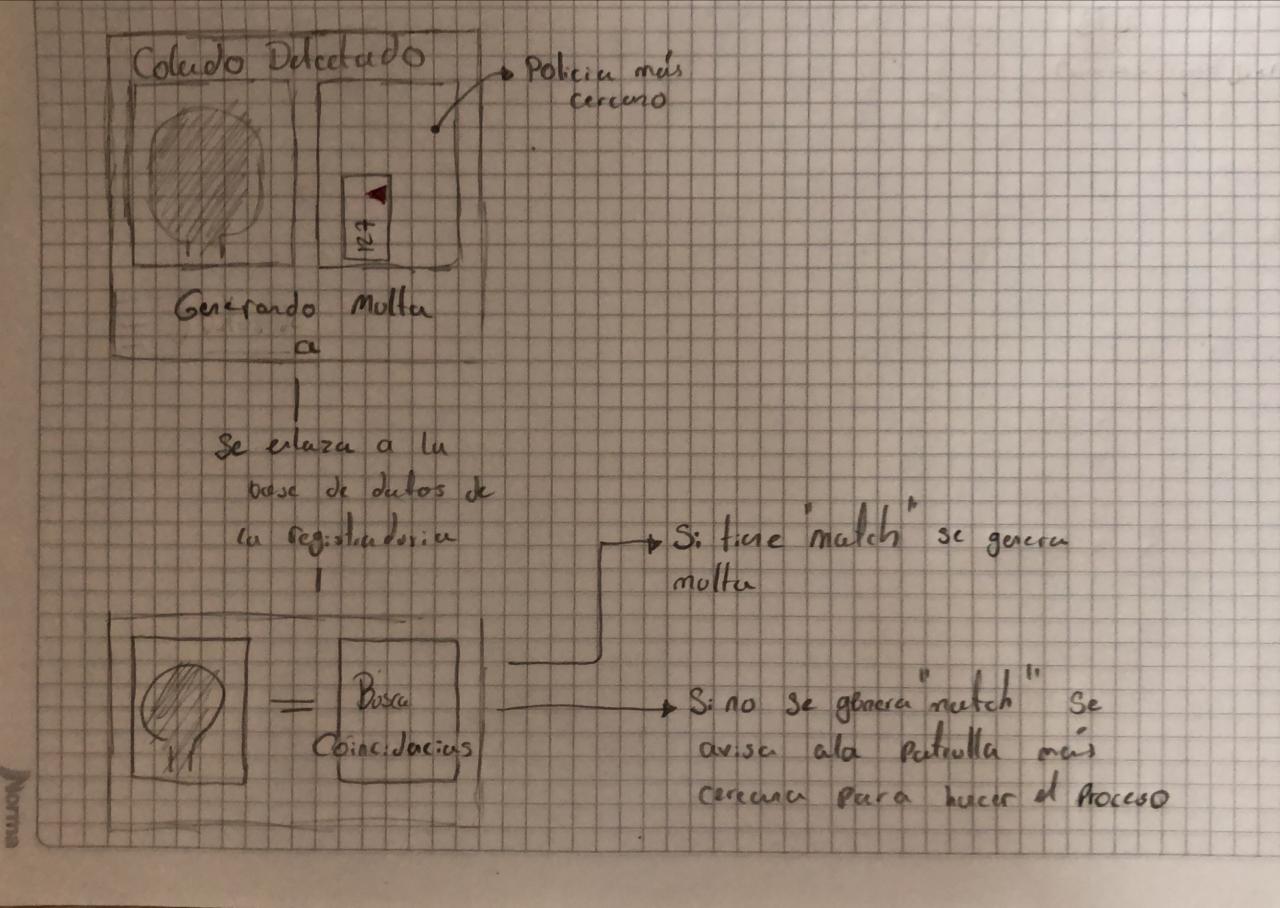 Colado Detectado
Policia más
cercano
127
Generando Multa
a
Se enlaza a la
base de datos de
la registraduria
Si tiene "match" se genera
multa
Busca
Coincidacias
Si no se genera "match" Se
avisa ala patrulla más
cercana para hacer el Proceso
Norma